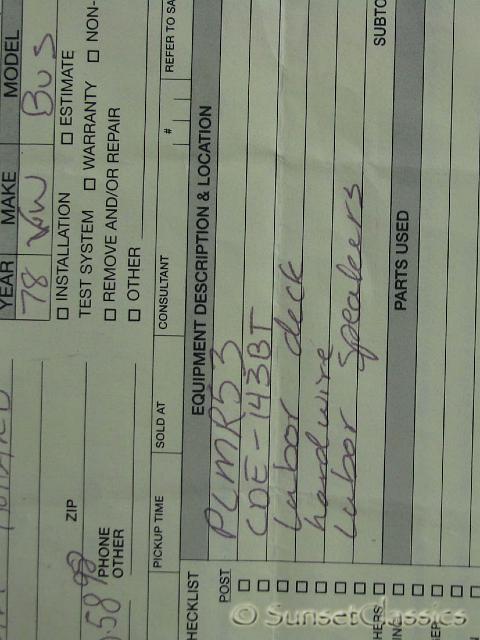 YEAR MAKE MODEL
78 VW BUS
INSTALLATION ESTIMATE
TEST SYSTEM WARRANTY NON-
REMOVE AND/OR REPAIR
OTHER
ZIP
58 98
PHONE
OTHER
PICKUP TIME SOLD AT CONSULTANT # REFER TO SA
HECKLIST EQUIPMENT DESCRIPTION & LOCATION
POST
PLMR53
CDE-143BT
Labor deck
hardwire
Labor Speakers
PARTS USED SUBTO
© SunsetClassics